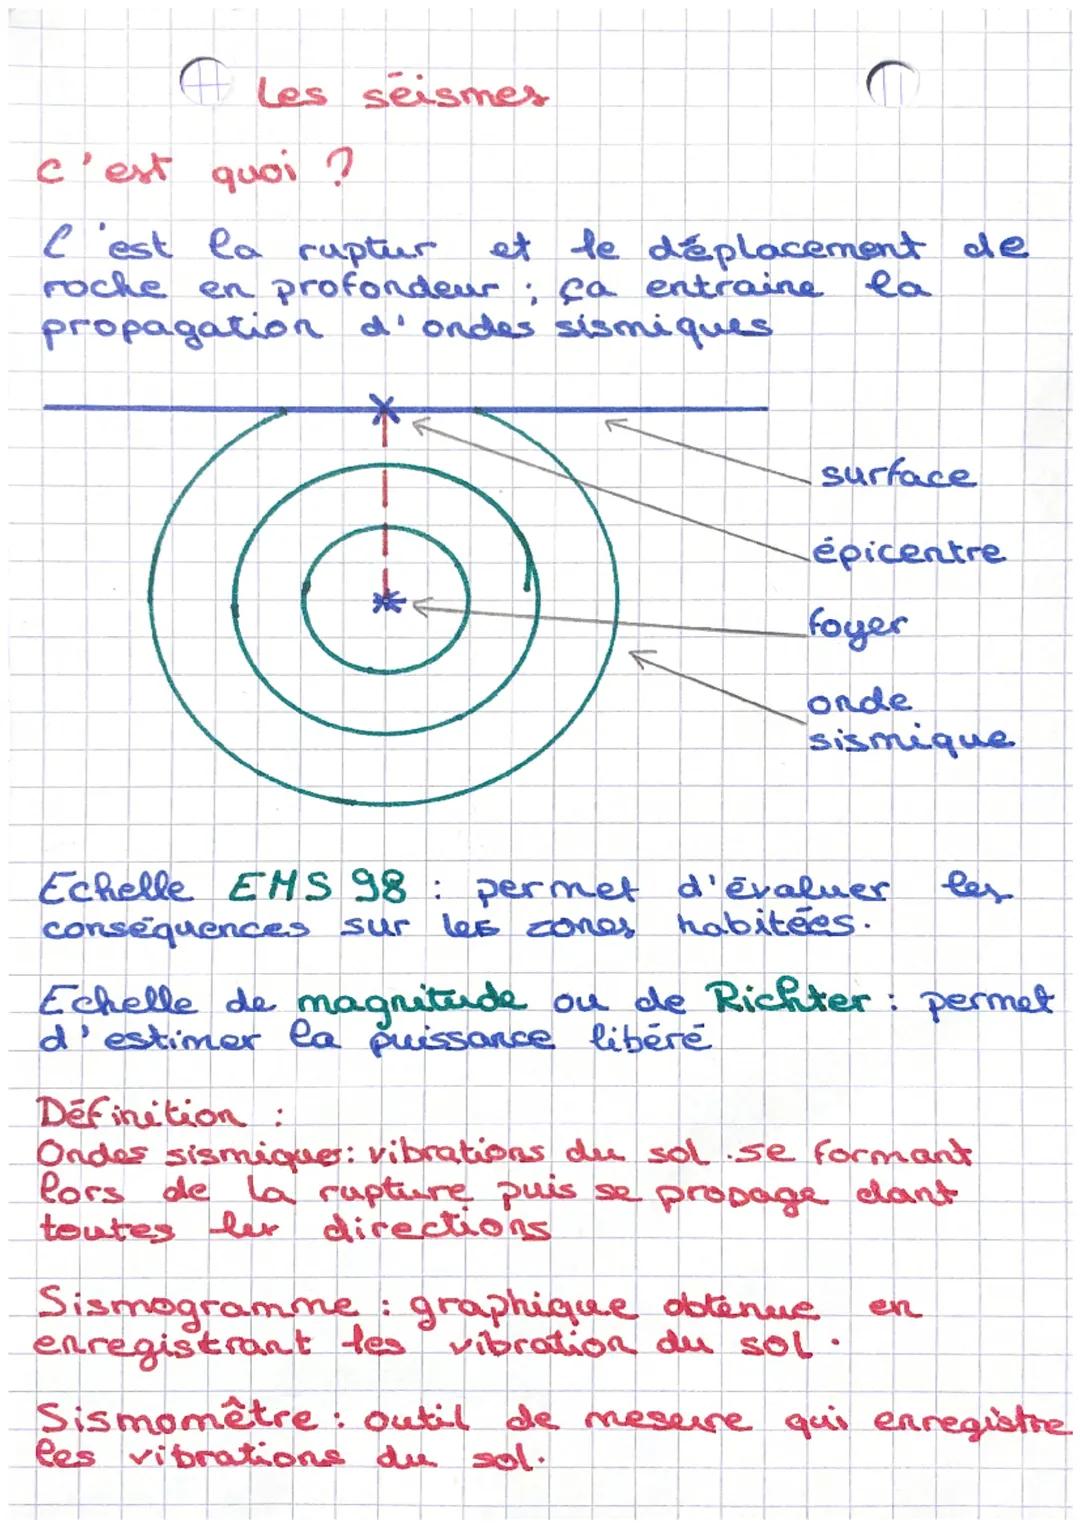 Les séismes
c'est quoi ?
C'est la ruptur et le déplacement de
roche en profondeur ; ça entraine la
propagation d'ondes sismiques
surface
épicentre
foyer
onde
sismique
Echelle EMS 98 : permet d'évaluer les
conséquences sur les zones habitées.
Echelle de magnitude ou de Richter : permet
d'estimer la puissance libéré
Définition :
Ondes sismiques: vibrations du sol se formant
lors de la rupture puis se propage dant
toutes les directions
Sismogramme : graphique obtenue en
enregistrant les vibration du sol.
Sismomêtre : outil de mesure qui enregistre
les vibrations du sol.